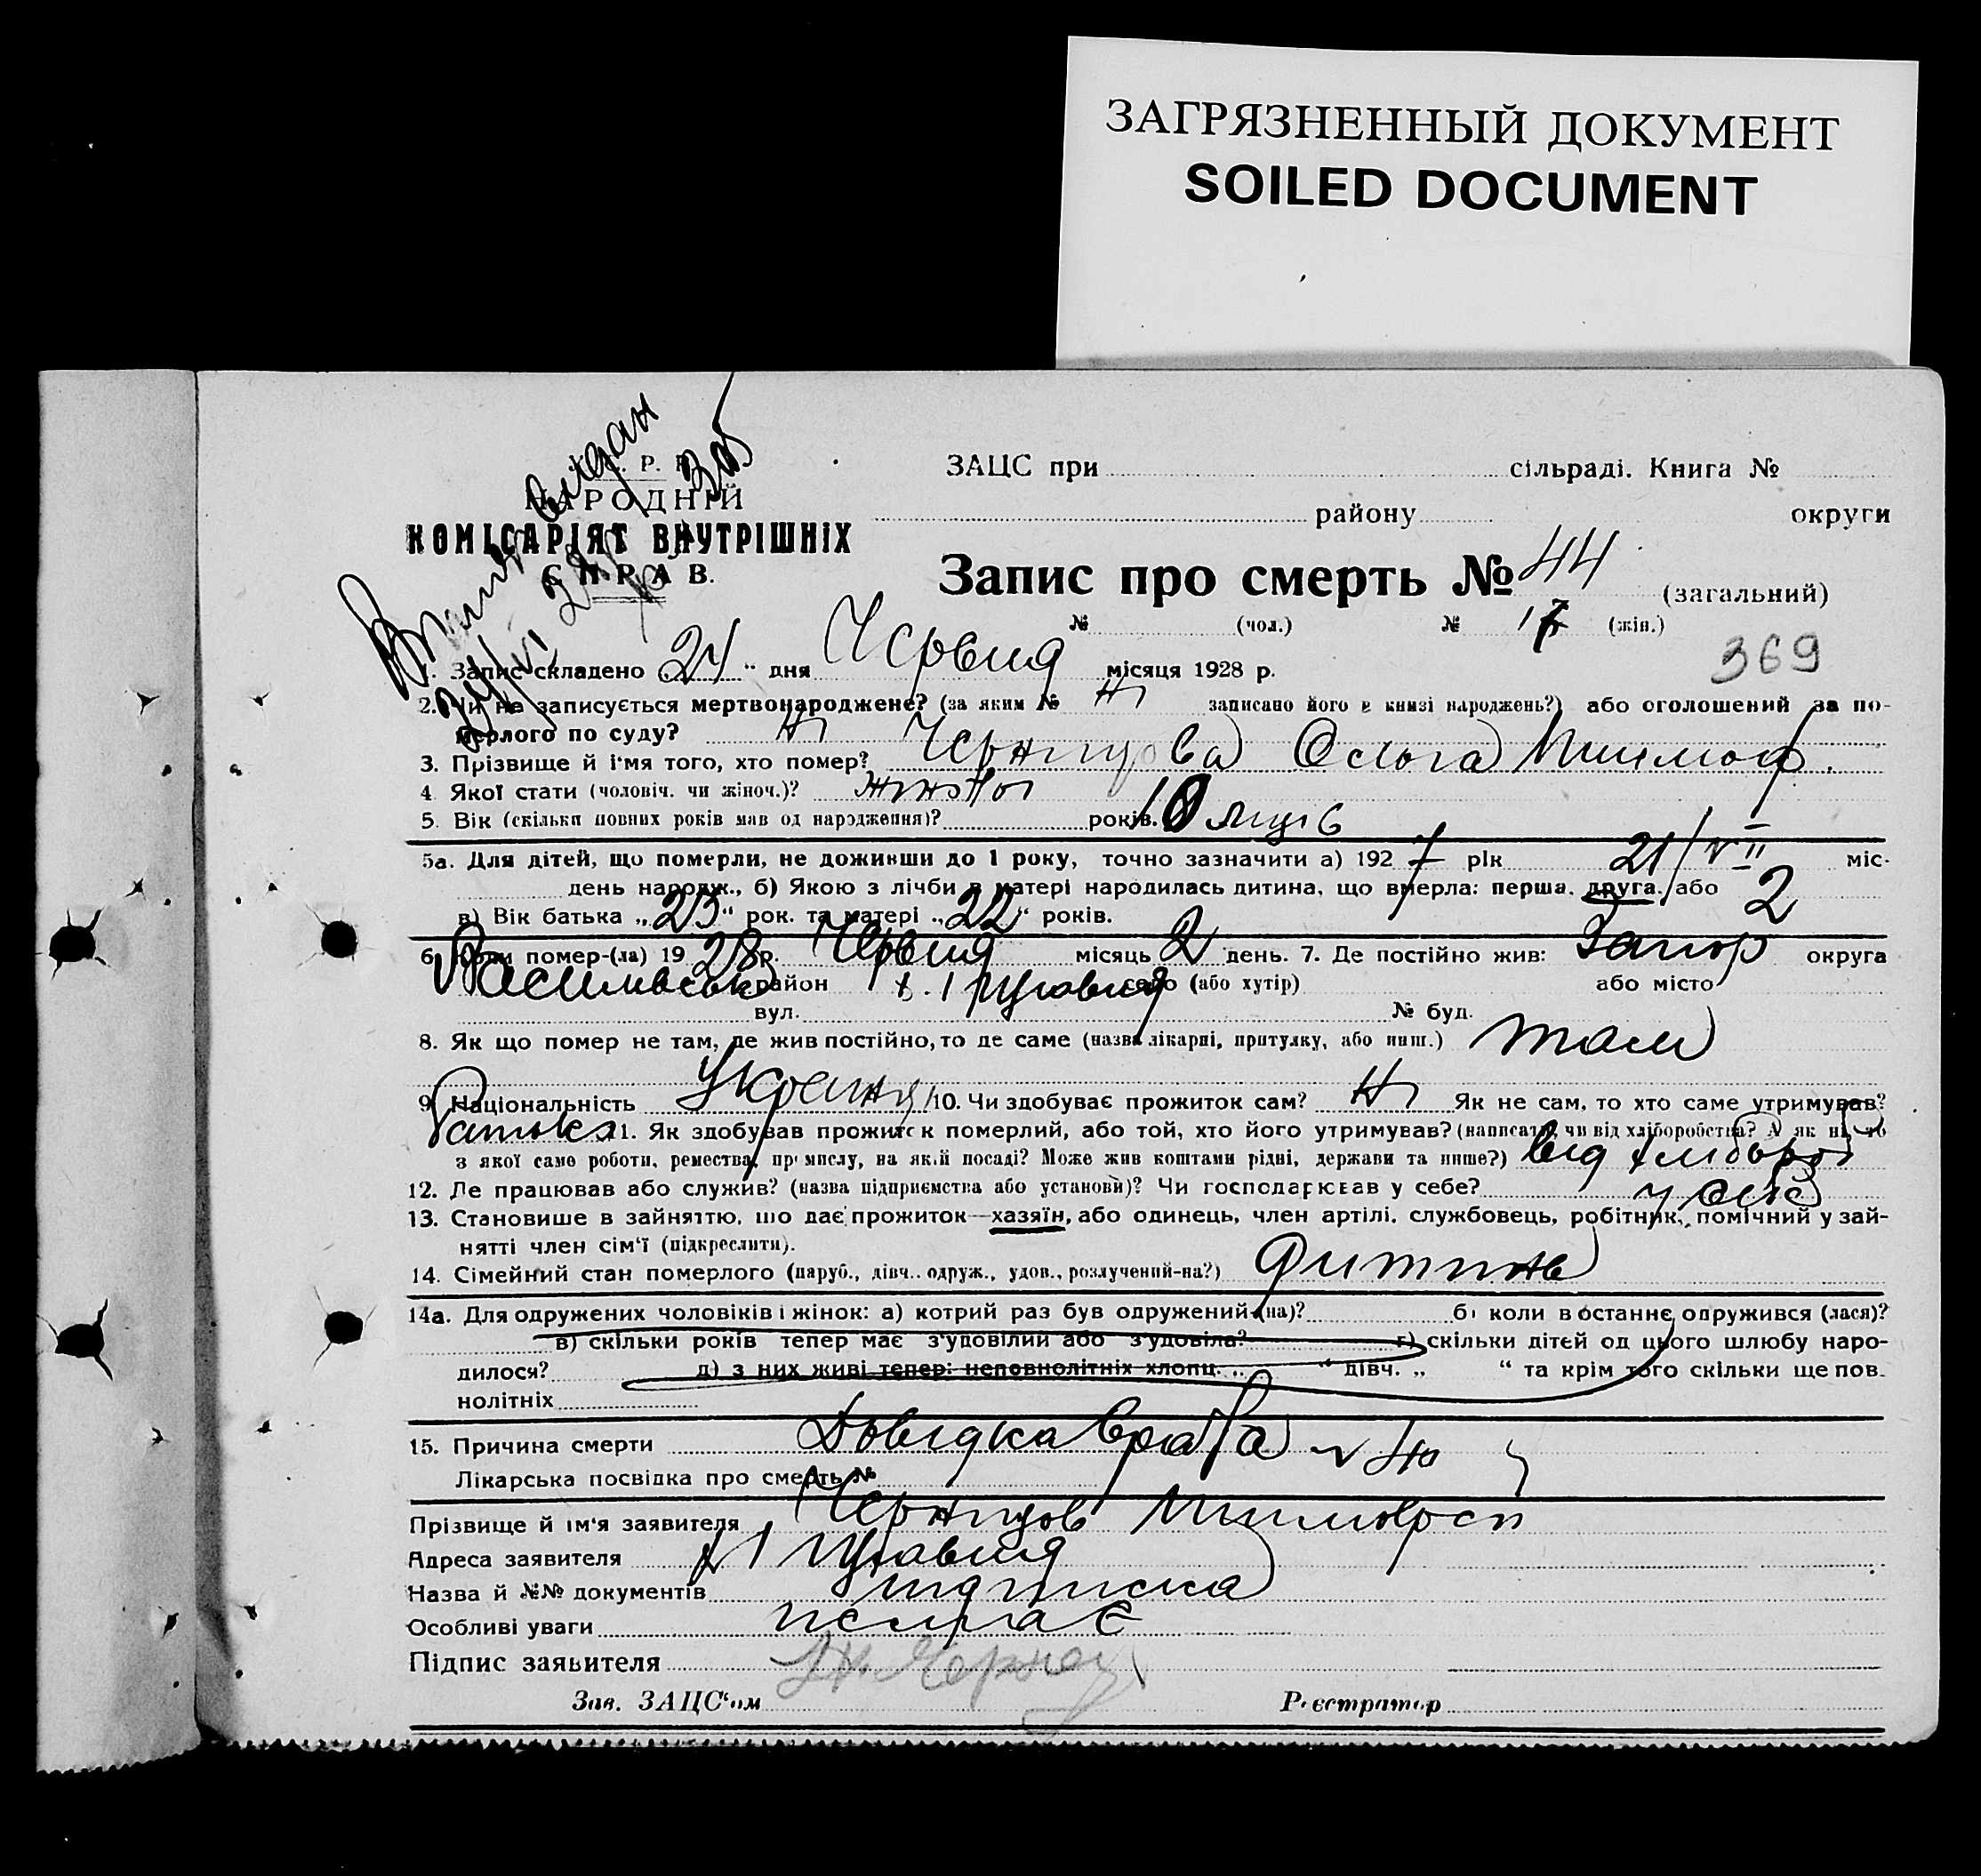 ЗАГРЯЗНЕННЫЙ ДОКУМЕНТ
SOILED DOCUMENT
НАРОДНІЙ
КОМІСАРІЯТ ВНУТРІШНІХ
СПРАВ.
видан
ЗАЦС при сільраді. Книга №
району округи
Запис про смерть № 44 (загальний)
№ (чол.) № 17 (жін.)
369
1. Запис складено 24 " дня Червня місяця 1928 р.
2. Чи не записується мертвонароджене? (за яким № Ні записано його в книзі народжень?) або оголошений за по-
мерлого по суду? Ні
3. Прізвище й ім'я того, хто помер? Чернцова Ольга
4. Якої стати (чоловіч. чи жіноч.)?
5. Вік (скільки повних років мав од народження)? років. 10 місців
5а. Для дітей, що померли, не доживши до 1 року, точно зазначити а) 1927 рік 21/VII міс.
день народж., б) Якою з лічби в матері народилась дитина, що вмерла: перша, друга, або 2
в) Вік батька „25" рок. та матері „22" років.
6. Коли помер-(ла) 1928 р. Червня місяць 2 день. 7. Де постійно жив: Запор округа
Василівськ район село (або хутір) або місто
вул. № буд.
8. Як що помер не там, де жив постійно, то де саме (назва лікарні, притулку, або инш.) там
9. Національність 10. Чи здобуває прожиток сам? Ні Як не сам, то хто саме утримував?
Батько 11. Як здобував прожиток померлий, або той, хто його утримував? (написати, чи від хліборобства? А як ні, то
з якої саме роботи, ремества, промислу, на якій посаді? Може жив коштами рідні, держави та инше?) від хлібороб
12. Де працював або служив? (назва підприємства або установи)? Чи господарював у себе? у себе
13. Становище в зайняттю, що дає прожиток—хазяїн, або одинець, член артілі, службовець, робітник, помічний у зай-
нятті член сім'ї (підкреслити).
14. Сімейний стан померлого (паруб., дівч., одруж., удов., розлучений-на?) дитина
14а. Для одружених чоловіків і жінок: а) котрий раз був одружений (на)? б) коли в останнє одружився (лася)?
в) скільки років тепер має з'удовілий або з'удовіла? г) скільки дітей од цього шлюбу наро-
дилося? д) з них живі тепер: неповнолітніх хлопц. „ " дівч. „ " та крім того скільки ще пов.
нолітніх
15. Причина смерти Довідка врача
Лікарська посвідка про смерть №
Прізвище й ім'я заявителя Чернцов
Адреса заявителя
Назва й №№ документів підписка
Особливі уваги немає
Підпис заявителя
Зав. ЗАЦС'ом Реєстратор